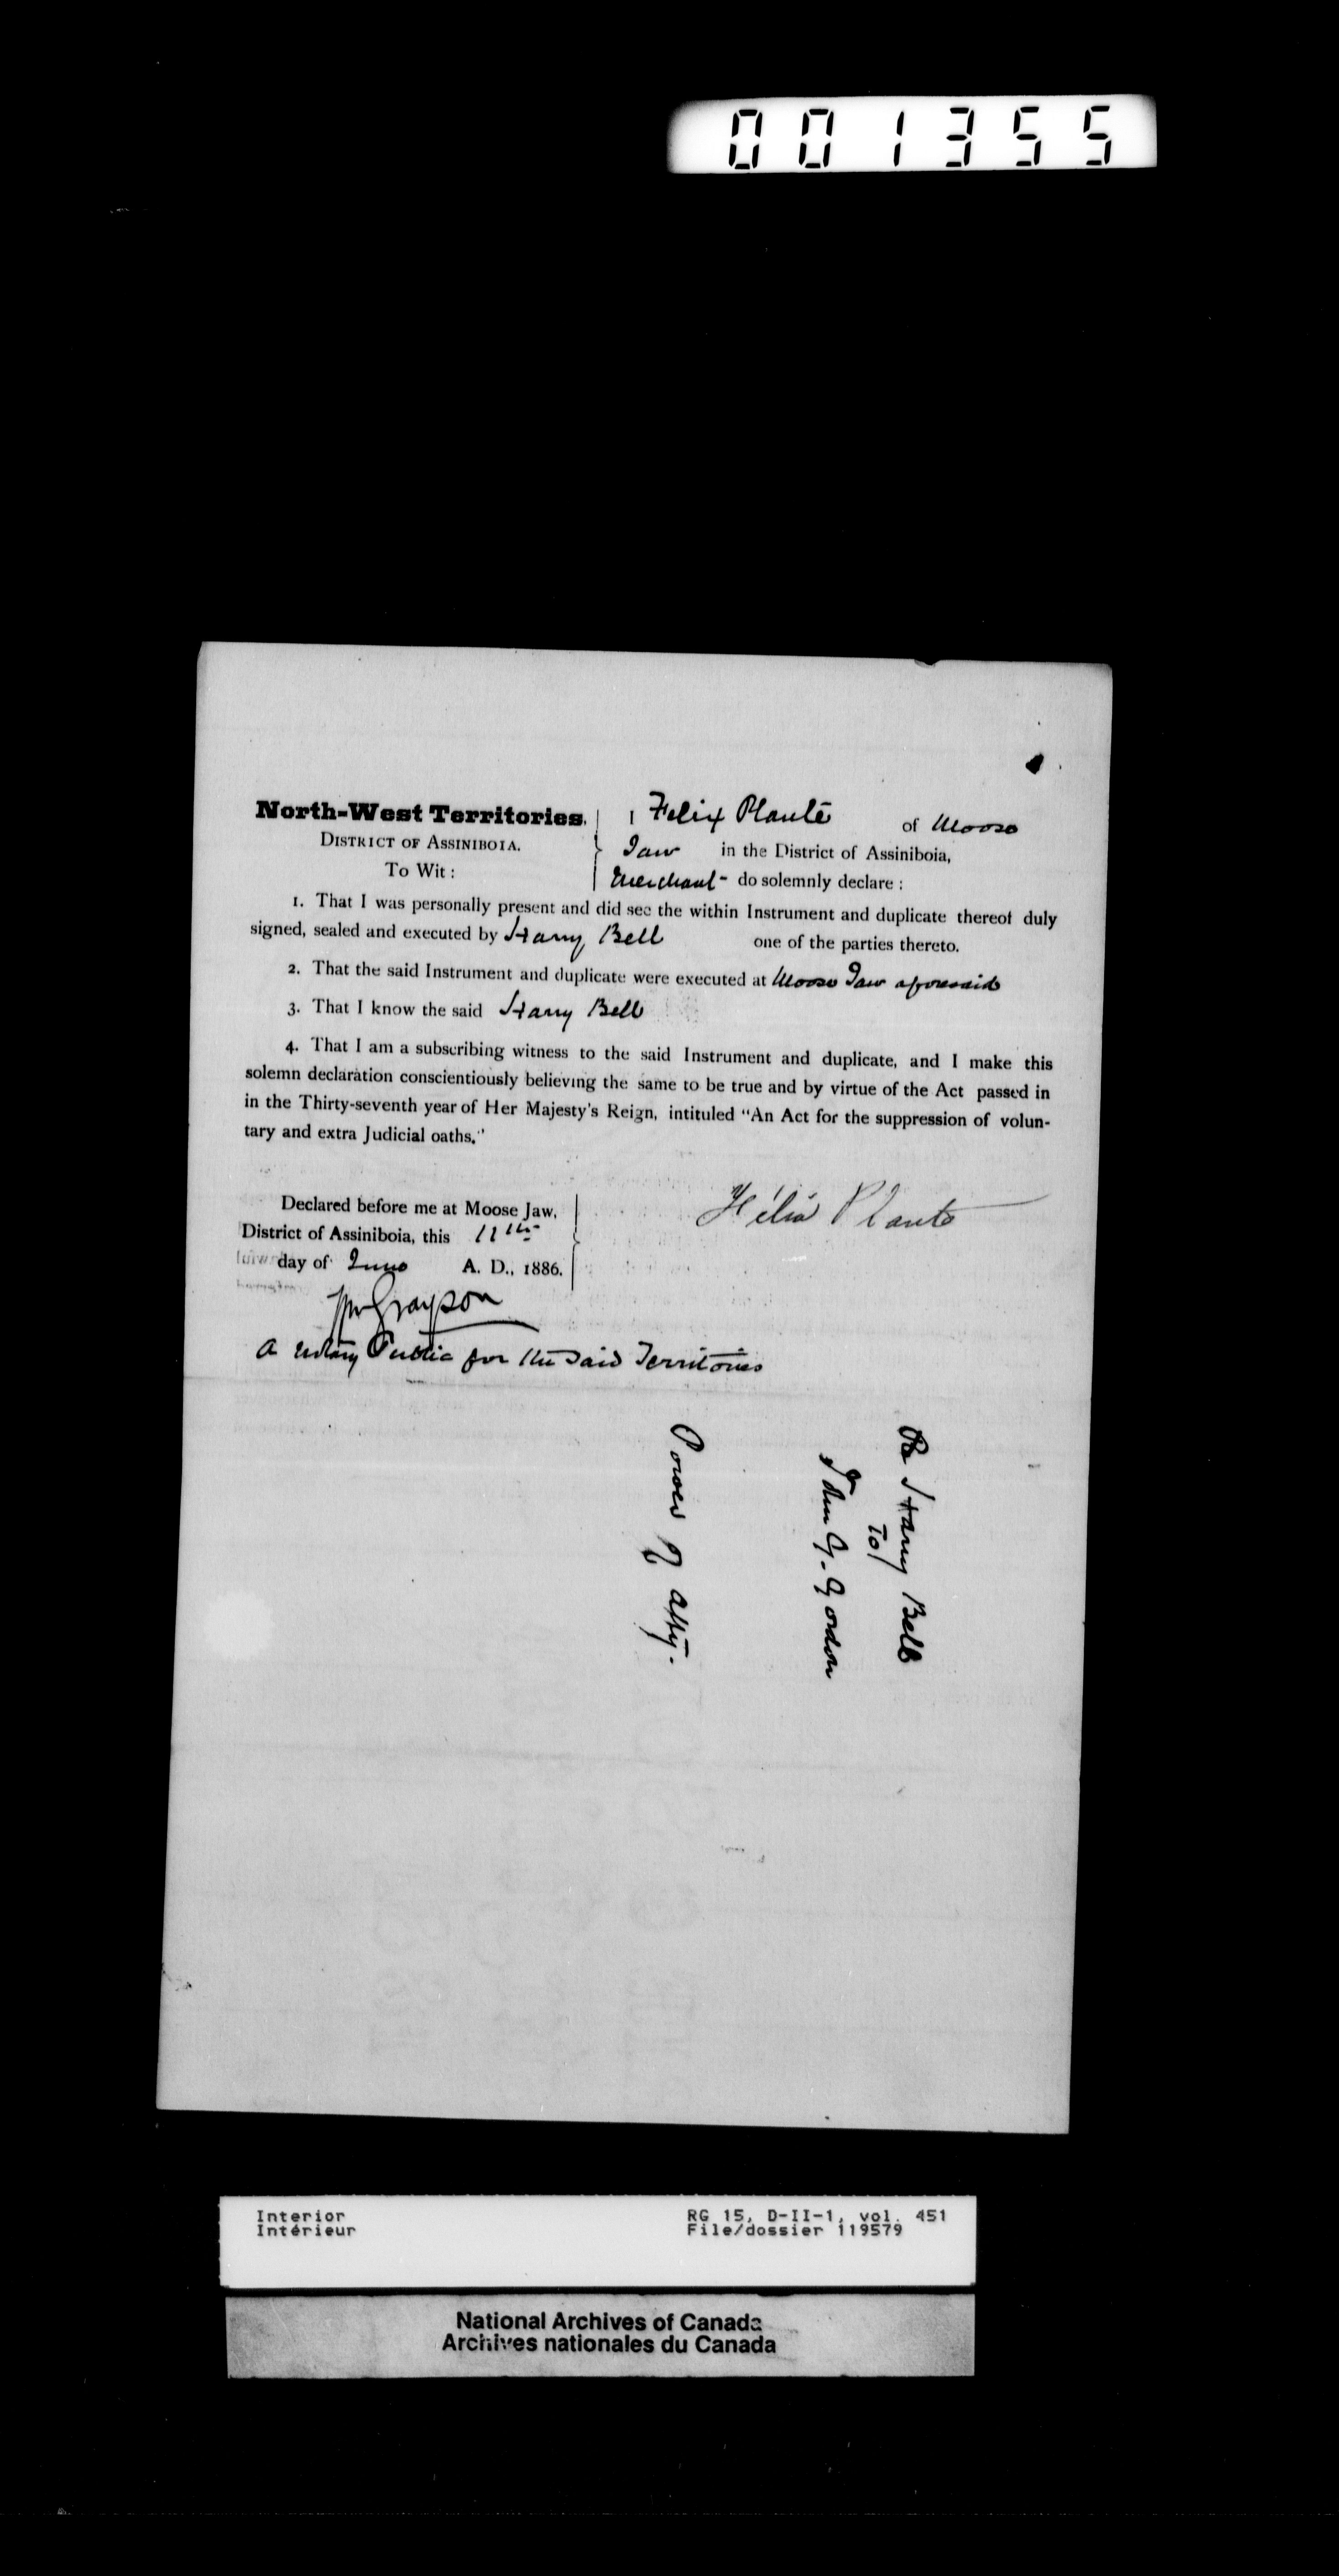 001355
North-West Territories. I Felix Planté of Moose
DISTRICT OF ASSINIBOIA. Jaw in the District of Assiniboia,
To Wit: Merchant do solemnly declare:
1. That I was personally present and did see the within Instrument and duplicate thereof duly
signed, sealed and executed by Harry Bell one of the parties thereto.
2. That the said Instrument and duplicate were executed at Moose Jaw aforesaid
3. That I know the said Harry Bell
4. That I am a subscribing witness to the said Instrument and duplicate, and I make this
solemn declaration conscientiously believing the same to be true and by virtue of the Act passed in
in the Thirty-seventh year of Her Majesty's Reign, intituled "An Act for the suppression of volun-
tary and extra Judicial oaths."
Declared before me at Moose Jaw,
District of Assiniboia, this 11th
day of June A. D., 1886.
Planto
Grayson
A Notary Public for the said Territories
Re Harry Bell
To
John G. Gordon
Power of atty.
Interior
Intérieur
RG 15, D-II-1, vol. 451
File/dossier 119579
National Archives of Canada
Archives nationales du Canada